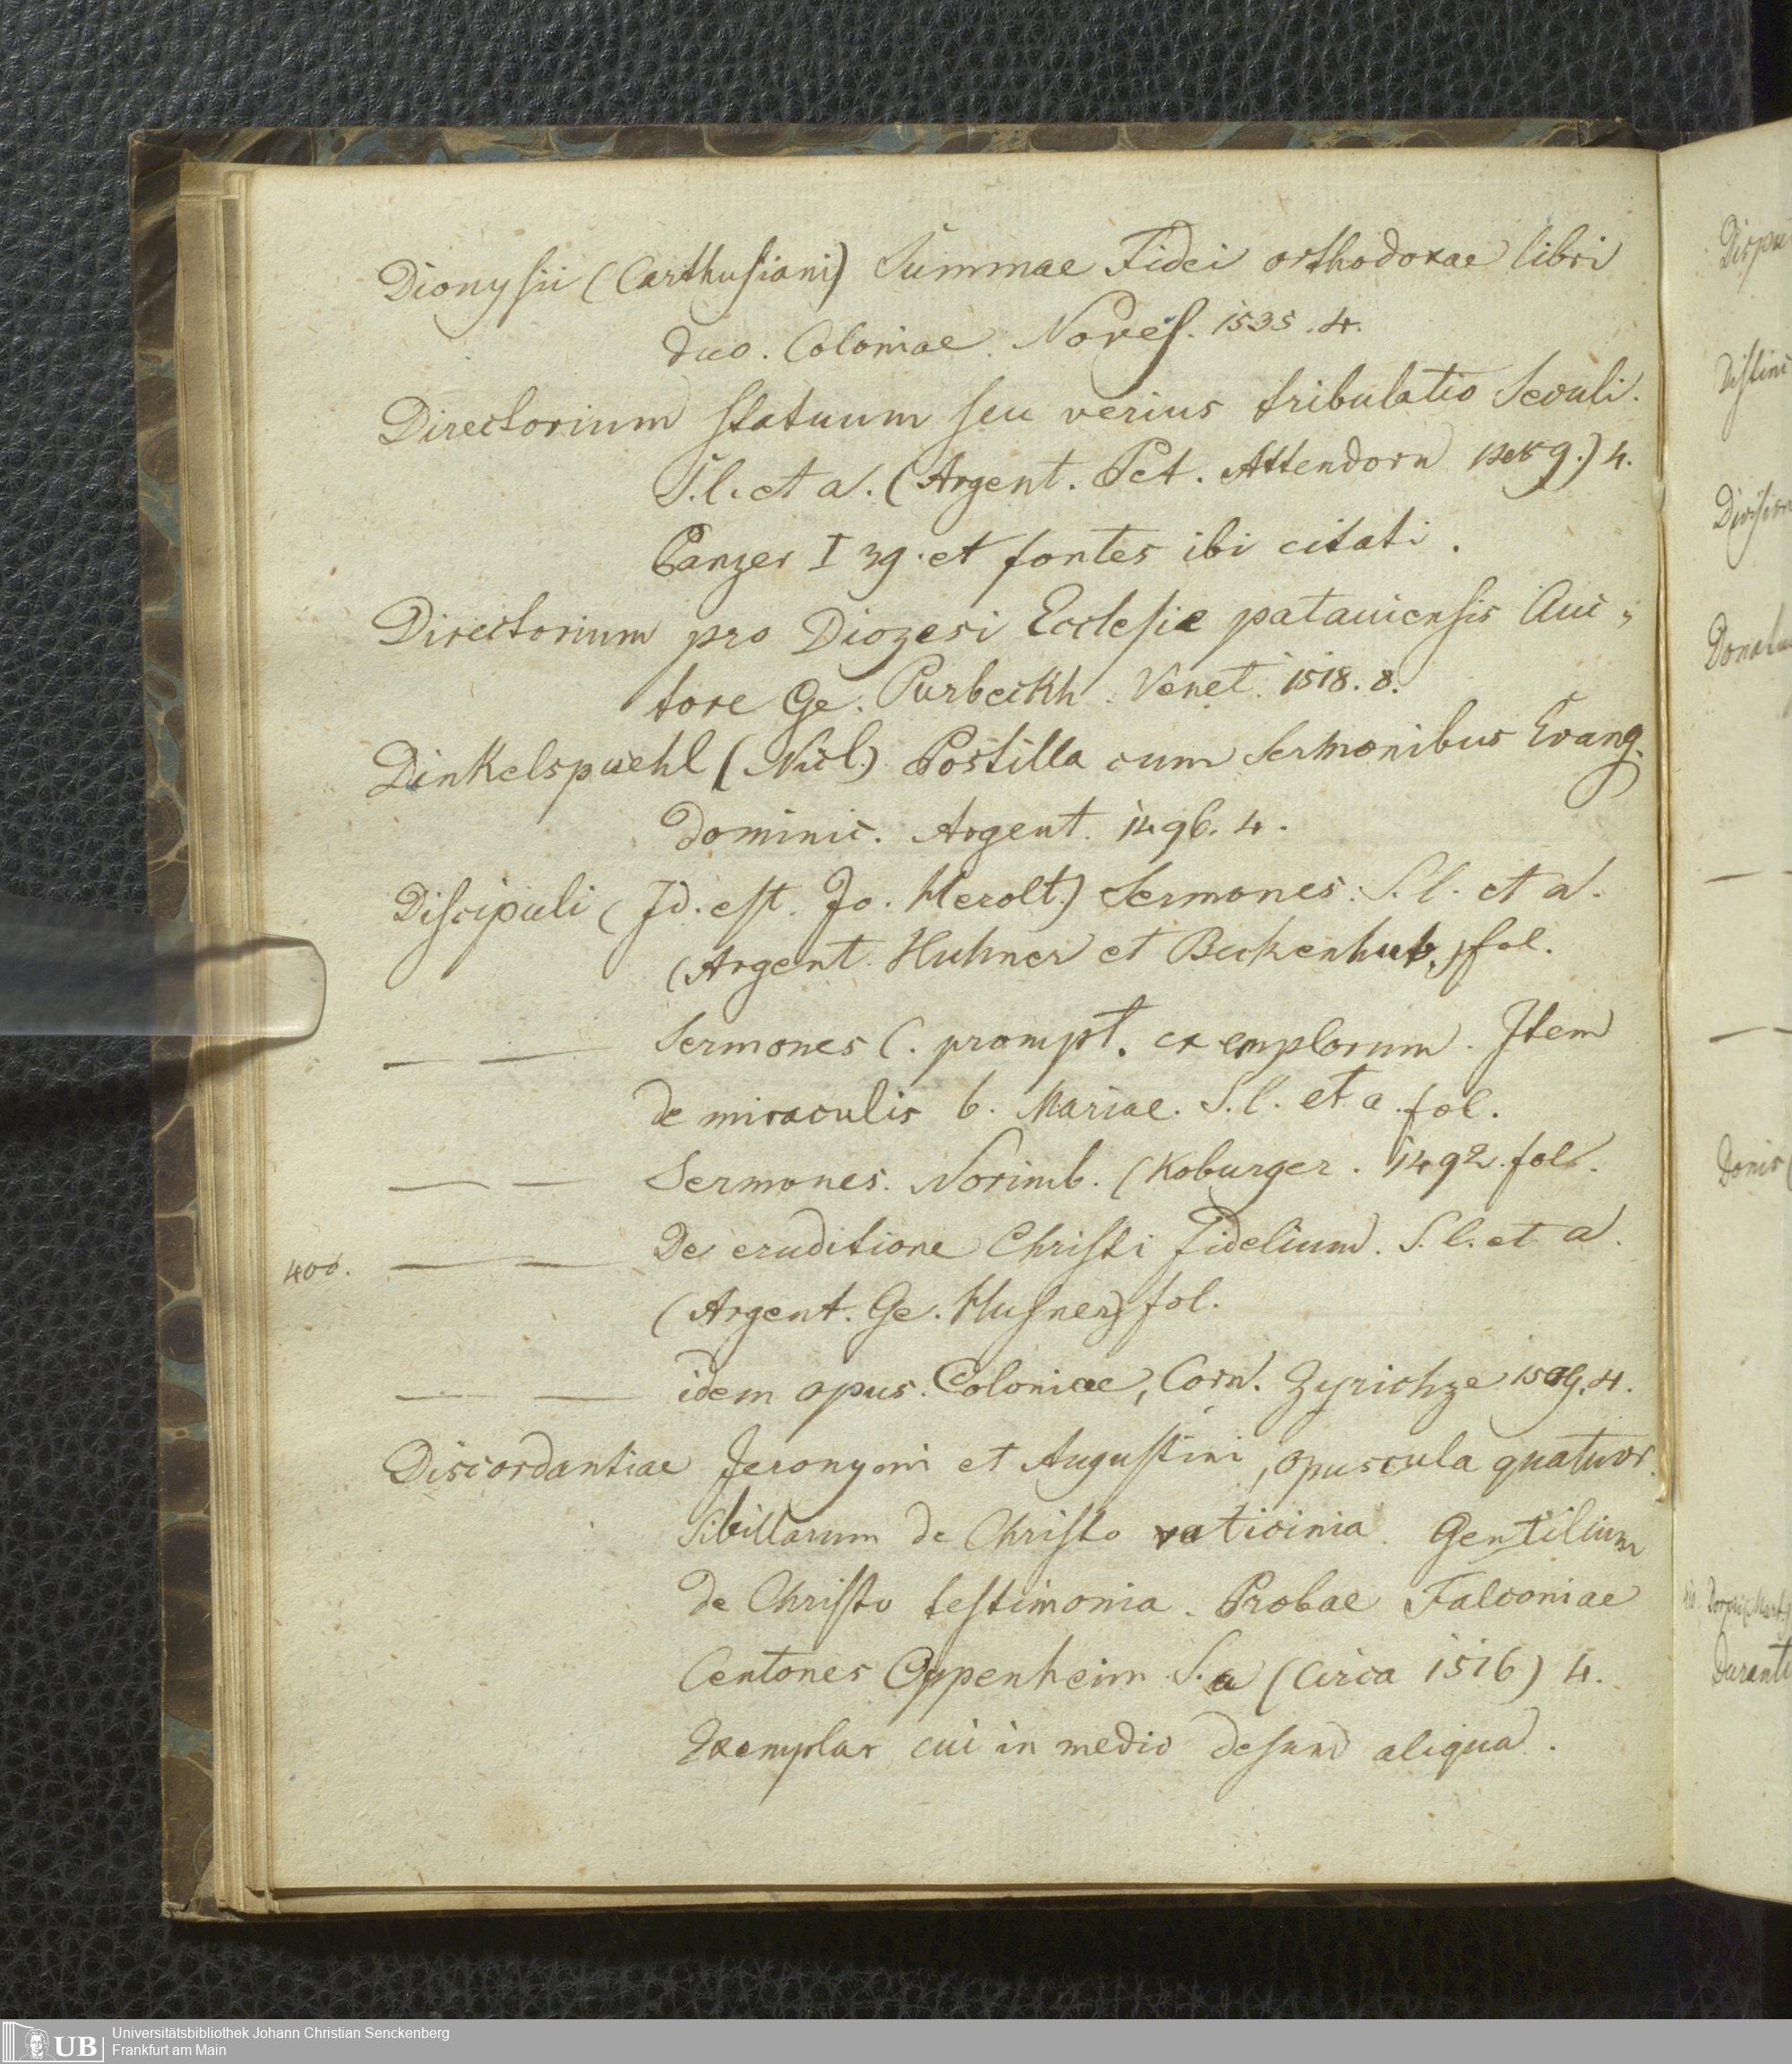 Dionysii (Carthusiani) Summae Fidei orthodoxae libri
duo. Coloniae. Noves. 1535. 4.
Directorium statuum seu verius tribulatio Seculi.
S. l. et a. (Argent. Pet. Attendorn 4.
Panzer I 39. et fontes ibi citati.
Directorium pro Diozesi Ecclesie patauiensis Auc„
tore Ge. Purbeckh. Venet. 1518. 8.
Dinkelspuehl (Nicl.) Postilla cum Sermonibus Evang.
dominic. Argent. 1496. 4.
Discipuli (Id. est. Jo. Herolt.) Sermones. S. l. et a.
(Argent. Huhner et Beckenhub.) fol.
— — Sermones c. prompt. exemplorum. Item
de miraculis b. Mariae. S. l. et a. fol.
— — Sermones. Norimb. (Koburger. 1492. fol.
400. — — De eruditione Christi Fidelium. S. l. et a.
(Argent. Ge. Husner) fol.
— — idem opus. Coloniae, Corn. Zyrichze 1509. 4.
Discordantiae Jeronymi et Augustini, opuscula quatuor.
Sibillarum de Christo vaticinia. Gentilium
de Christo testimonia. Probae Falconiae
Centones Oppenheim. S. a (Circa 1516) 4.
Exemplar cui in medio desund aliqua.
Dispu
Distinc
Division
Donatu
—
—
Donis (
Duranti
UB Universitätsbibliothek Johann Christian Senckenberg
Frankfurt am Main